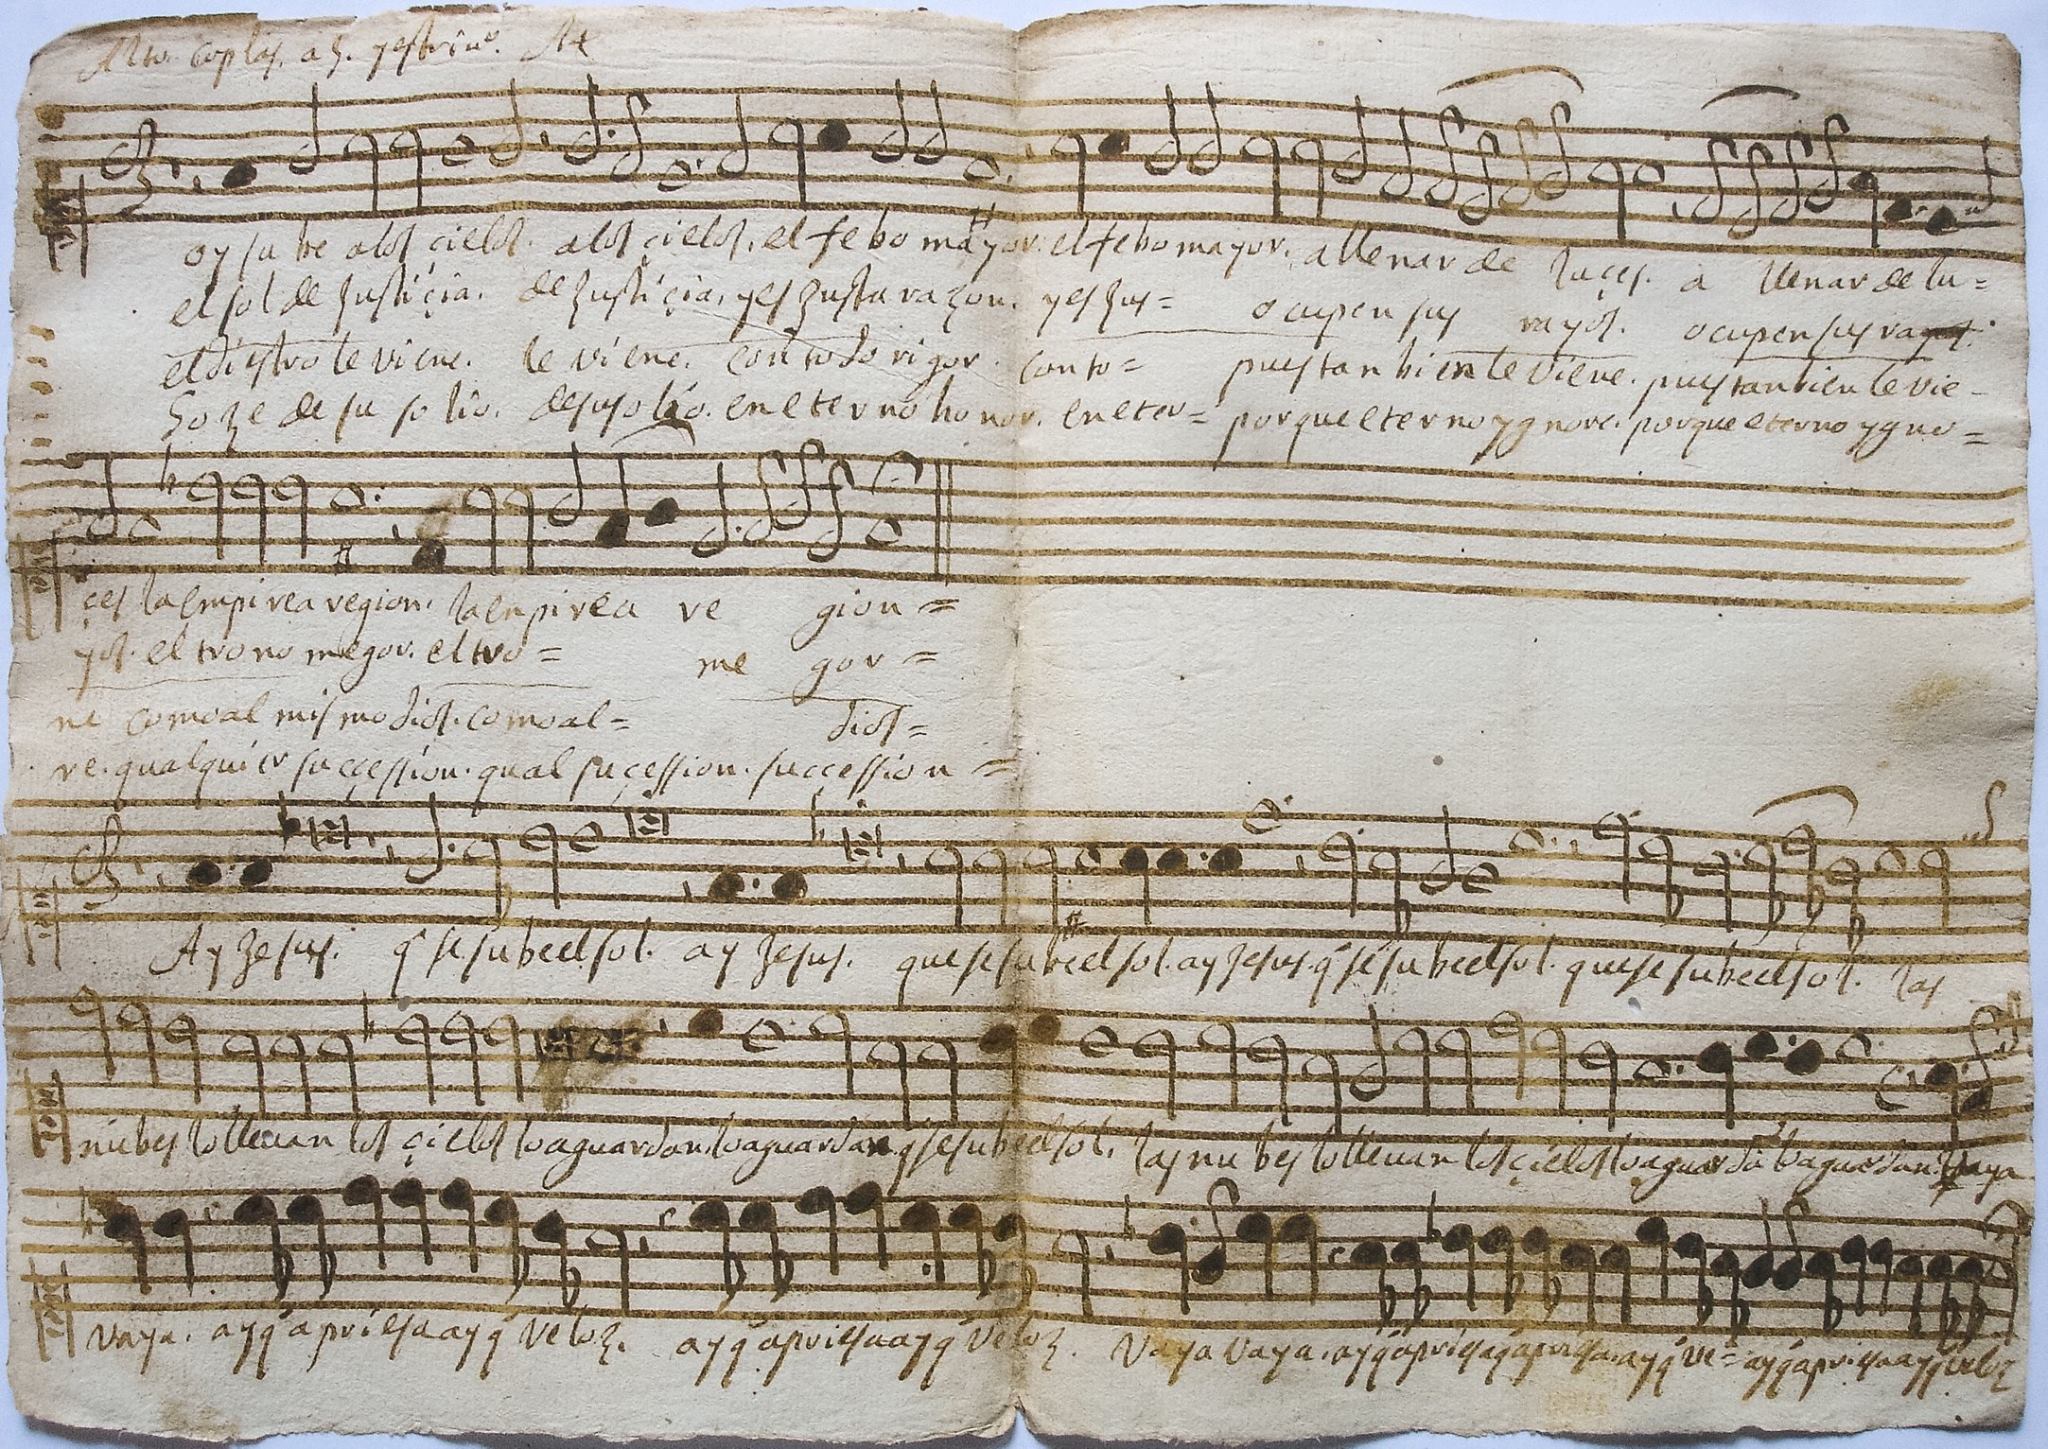 Alto. coplas. a 3. y estriuo. A4
oy su be alos çielos. alos çielos. el febo mayor. el febo mayor. allenar de luçes. a llenar de lu=
el sol de Justiçia. de Justiçia. y es Justa razon. y es Jus= ocupen sus rayos. ocupen sus ra
el diestro le viene. le viene. con todo rigor. con to= pues tan bien le viene. pues tan bien le vie-
Goze de su solio. de su solio. en eterno honor. en eter= porque eterno ygnore. porque eterno ygno=
çes la empirea region. la enpirea re gion=
yos. el trono megor. el tro= me gor=
ne como al mismo dios. como al= dios=
re. qualquier suççession. qual suçession. suççession=
Ay Jesus. q se sube el sol. ay Jesus. que se sube el sol. ay Jesus. q se sube el sol. que se sube el sol. las
nubes lo lleuan los çielos lo aguardan. lo aguardan. q se sube el sol. las nubes lo lleuan los çielos lo aguardã lo aguardan. Vaya
vaya. ay q apriesa ay q veloz. ay q apriesa ay q veloz. Vaya vaya. ay q apriesa q apriesa. ay q ve= ay q apriesa ay q veloz